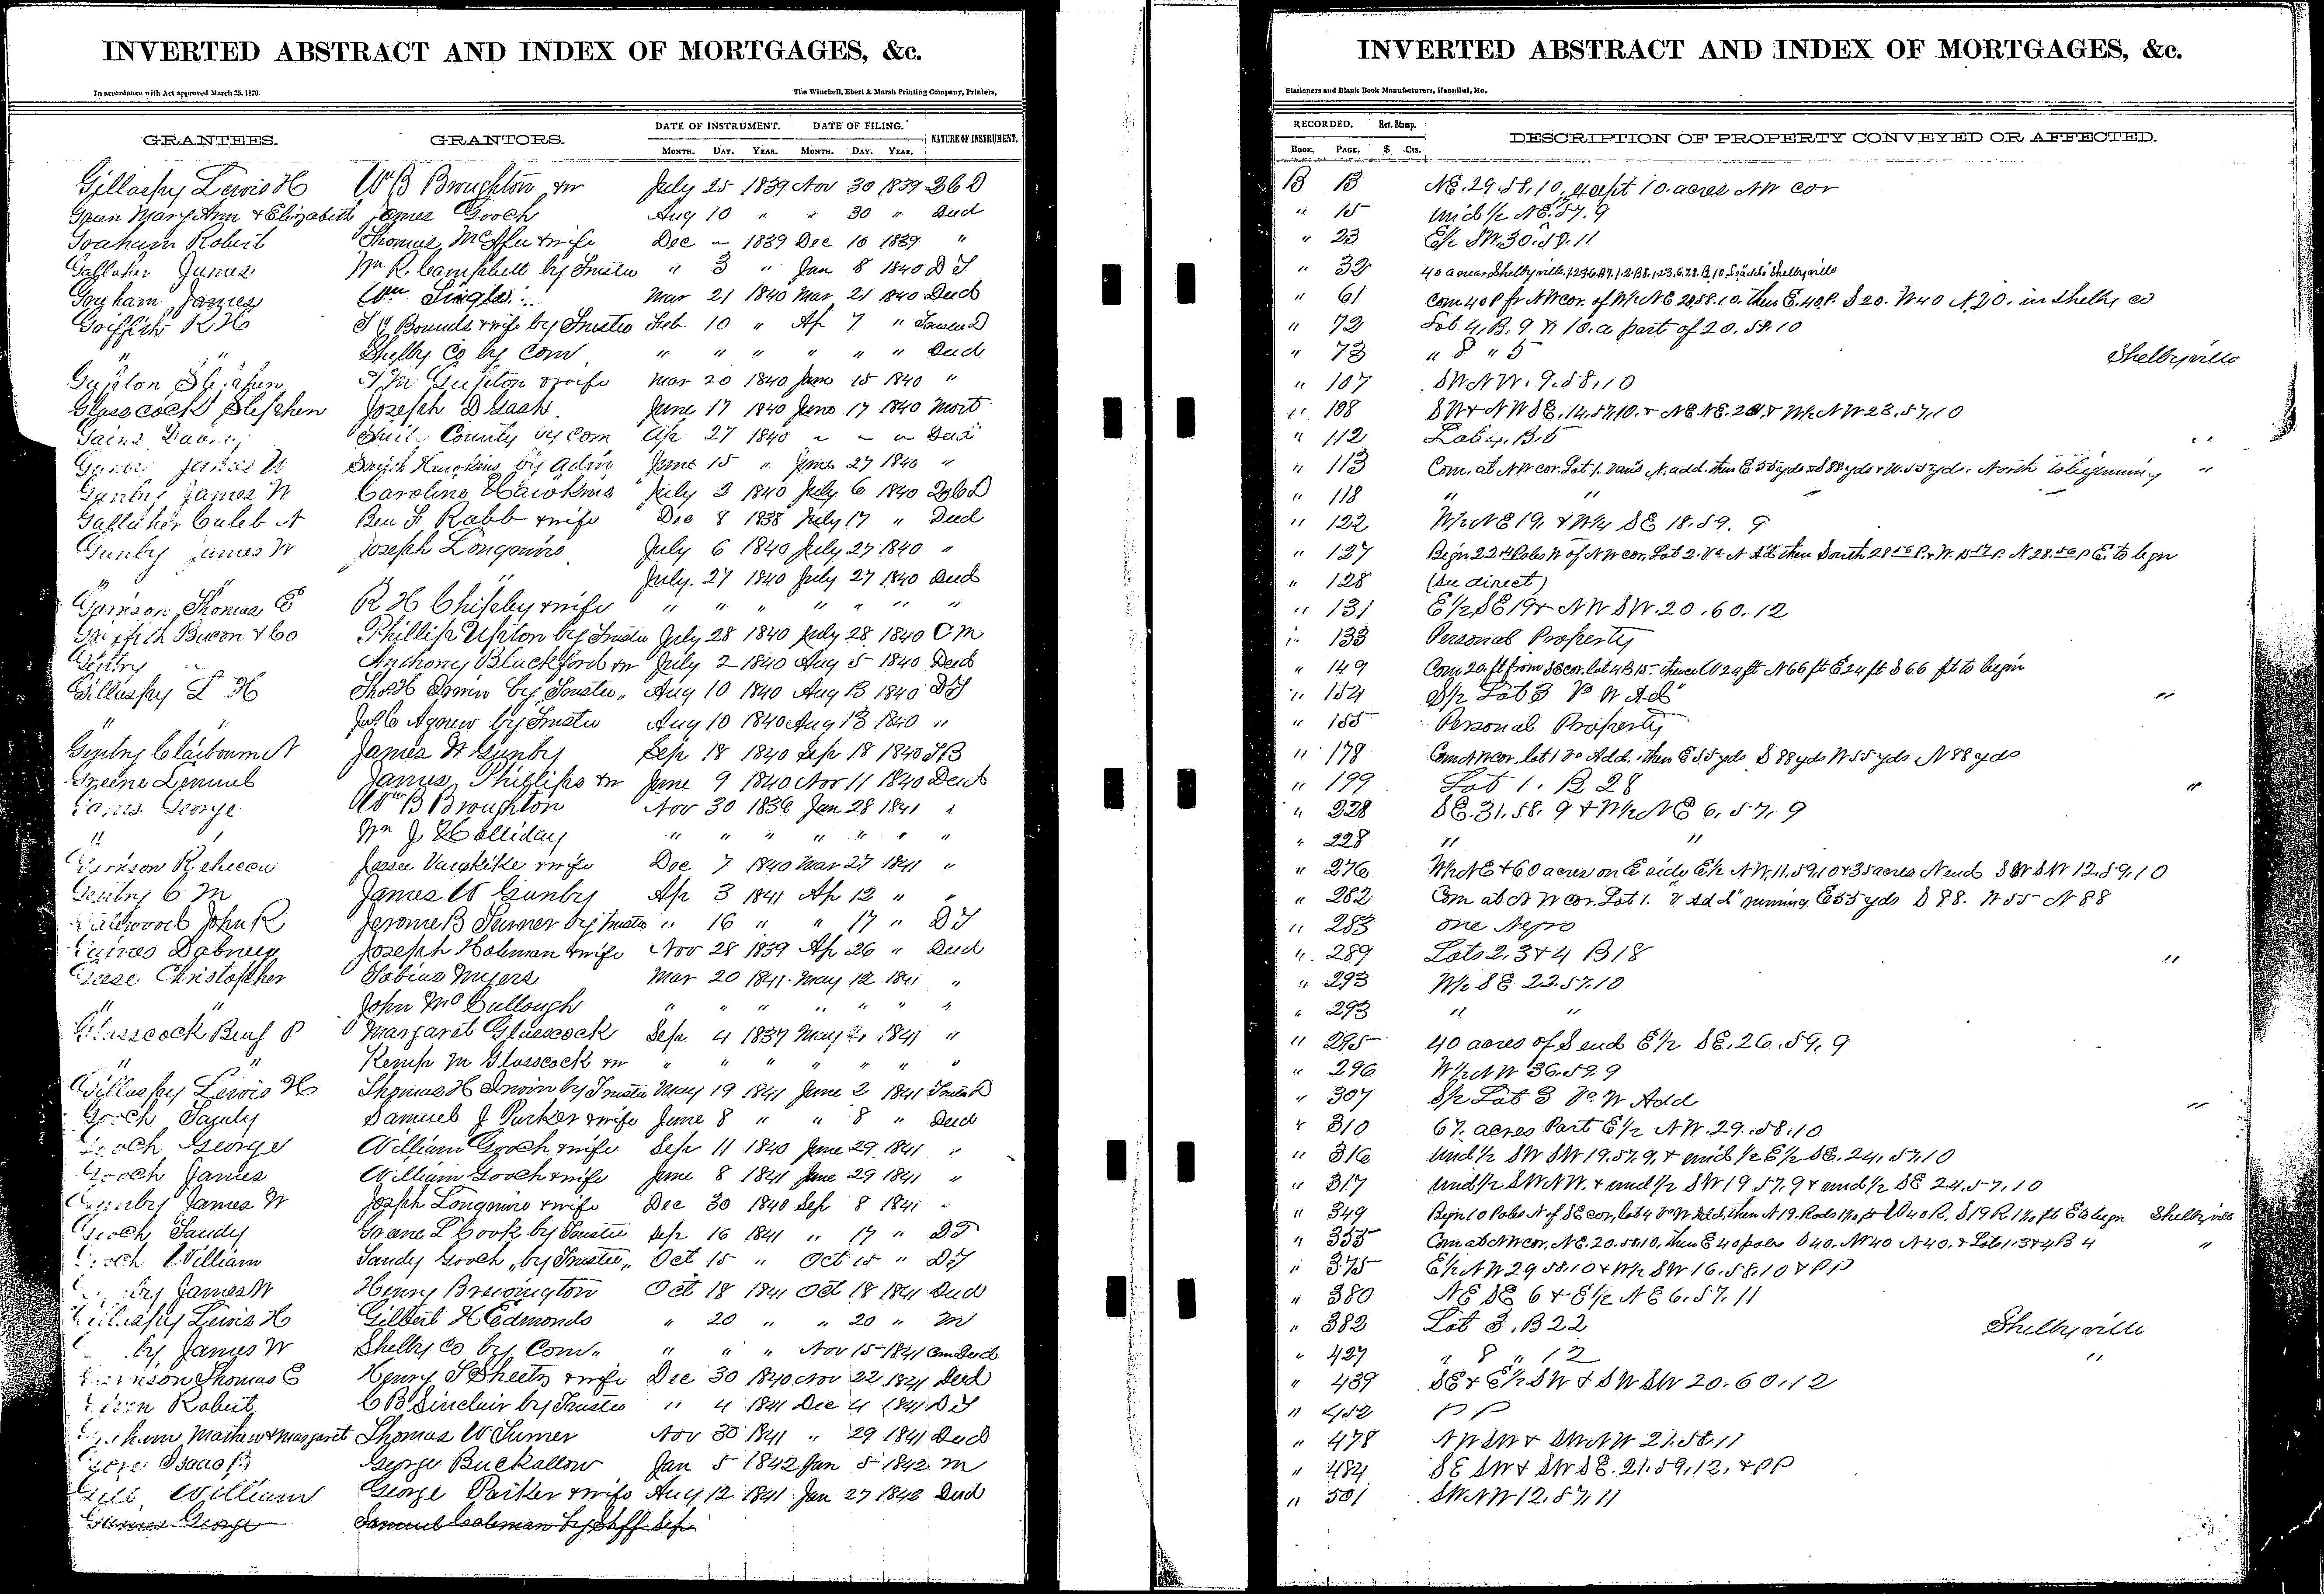 INVERTED ABSTRACT AND INDEX OF MORTGAGES, &c.
In accordance with Act approved March 25, 1870.
The Winchell, Ebert & Marsh Printing Company, Printers,
GRANTEES. GRANTORS. DATE OF INSTRUMENT. DATE OF FILING. NATURE OF INSTRUMENT.
MONTH. DAY. YEAR. MONTH. DAY. YEAR.
Gillaspy Lewis H Wm B Broughton wr July 25 1839 Nov 30 1839
Green Mary Ann & Elizabeth James Gooch Aug 10 " " 30 " Deed
Graham Robert Thomas McAfee & wife Dec " 1839 Dec 10 1839 "
Gallaher James Wm R. Campbell by Trustee " 3 " Jan 8 1840 D T
Gorham James Wm Mar 21 1840 Mar 21 1840 Deed
Griffith R H Bounds & wife by Trustee Feb 10 " Ap 7 "
" " Shelby Co by Com " " " " " " Deed
Gupton Stephen Gupton & wife Mar 20 1840 June 15 1840 "
Glasscock Stephen Joseph D Gash June 17 1840 June 17 1840 Mort
Gains Dabney County by Com Ap 27 1840 " " " Deed
Gunby James W Hawkins by Adm June 15 " June 27 1840 "
Gunby James W Caroline Hawkins July 2 1840 July 6 1840
Gallaher Caleb A Ben F Rabb & wife Dec 8 1838 July 17 " Deed
Gunby James W Joseph Longmire July 6 1840 July 27 1840 "
" " July. 27 1840 July 27 1840 Deed
Garrison Thomas E R H Chipley & wife " " " " " " "
Griffith Bacon & Co Phillip Upton by Trustee July 28 1840 July 28 1840 C M
Gentry Anthony Blackford wr July 2 1840 Aug 5 1840 Deed
Gillaspy L H Thos H Irwin by Trustee Aug 10 1840 Aug 13 1840 D T
" " Agnew by Trustee Aug 10 1840 Aug 13 1840 "
Gunby Claibourne A James W Gunby Sep 18 1840 Sep 18 1840
Greene Lemuel James Phillips wr June 9 1840 Nov 11 1840 Deed
Gaines George Wm B Broughton Nov 30 1836 Jan 28 1841 "
" " Wm J Holliday " " " " " " "
Garrison Rebecca Jesse Vanskike & wife Dec 7 1840 Mar 27 1841 "
Gunby C M James W Gunby Ap 3 1841 Ap 12 " "
John R Jerome B Turner by Trustee " 16 " " 17 " D T
Gaines Dabney Joseph Holeman & wife Nov 28 1839 Ap 26 " Deed
Geese Christopher Tobias Myers Mar 20 1841 May 12 1841 "
" " John McCullough " " " " " " "
Glasscock Benj P Margaret Glasscock Sep 4 1837 May 1841 "
" " Kemp M Glasscock wr " " " " " " "
Gillaspy Lewis H Thomas H Irwin by Trustee May 19 1841 June 2 1841
Gooch Samuel J Parker & wife June 8 " " 8 " Deed
Gooch George William Gooch & wife Sep 11 1840 June 29 1841 "
Gooch James William Gooch & wife June 8 1841 June 29 1841 "
Gunby James W Joseph Longmire & wife Dec 30 1840 Sep 8 1841 "
Gooch Sandy Greene L Cook by Trustee Sep 16 1841 " 17 " D T
Gooch William Sandy Gooch by Trustee Oct 15 " Oct 15 " D T
by James W Henry Brewington Oct 18 1841 Oct 18 1841 Deed
Gillaspy Lewis H Gilbert H Edmonds " 20 " " 20 " M
by James W Shelby Co by Com. " " " Nov 15 1841 Com Deed
Thomas E Henry S Sheetz & wife Dec 30 1840 Nov 22 1841 Deed
Green Robert C B Sinclair by Trustee " 4 1841 Dec 4 1841 D T
Graham Mathew & Margaret Thomas W Turner Nov 30 1841 " 29 1841 Deed
Isaac B George Buckallow Jan 5 1842 Jan 5 1842 M
Gill William George Parker & wife Aug 12 1841 Jan 27 1842 Deed
George Samuel Coleman by Shff Sep
INVERTED ABSTRACT AND INDEX OF MORTGAGES, &c.
Stationers and Blank Book Manufacturers, Hannibal, Mo.
RECORDED. Rev. Stamp. DESCRIPTION OF PROPERTY CONVEYED OR AFFECTED.
BOOK. PAGE. $ Cts.
B 13 NE. 29. 58. 10, except 10 acres NW cor
" 15 und ½ NE. 57. 9
" 23 E½ SW. 30. 58. 11
" 32 40 a near Shelbyville
" 61 Com 40 P fr NW cor. of W½ NE 20.58.10. then E. 40 P. S 20. W 40 N 20. in Shelby co
" 72 Lot 4, B. 9 & 10. a part of 20. 58. 10
" 73 " 8 " 5 Shelbyville
" 107 SW NW. 9. 58. 10
" 108 SW & NW SE. 14. 57. 10. & NE NE. 28. & W½ NW 23. 57. 10
" 112 Lot 4. B. 5 "
" 113 Com. at NW cor. Lot 1. Van's N. add. then E 55 yds S 88 yds W. 55 yds. North to beginning "
" 118 " "
" 122 W½ NE 19. & W½ SE 18. 59. 9
" 127
" 128 (See direct)
" 131 E½ SE 19 & NW SW. 20. 60. 12
" 133 Personal Property
" 149 Com 20 ft from SE cor. lot 4 B 15. thence W 24 ft N 66 ft E 24 ft S 66 ft to begin
" 154 S½ Lot 3 Vs W Ad "
" 155 Personal Property
" 178 Com NW cor. lot 1 Vs Add. then E 55 yds S 88 yds W 55 yds N 88 yds
" 199 Lot 1. B 28 "
" 228 SE. 31. 58. 9 & W½ NE 6. 57. 9
" 228 " "
" 276 W½ NE & 60 acres on E side E½ NW. 11. 59. 10 & 35 acres N end SW SW 12. 59. 10
" 282 Com at NW cor. Lot 1. V Add running E 55 yds S 88. W 55 N 88
" 283 one Negro
" 289 Lots 2, 3 & 4 B 18 "
" 293 W½ SE 22. 57. 10
" 293 " "
" 295 40 acres of S end E½ SE. 26. 59. 9
" 296 W½ NW 36. 59. 9
" 307 S½ Lot 3 Vs W Add "
" 310 67. acres Part E½ NW. 29. 58. 10
" 316 und ½ SW SW 19. 57. 9. & und ½ E½ SE. 24. 57. 10
" 317 und ½ SW NW. & und ½ SW 19 57. 9 & und ½ SE 24. 57. 10
" 349 Shelbyville
" 355 Com at NW cor. NE. 20. 58. 10, then E 40 poles S 40. W 40 N 40. & Lots 1. 3 & 4 B 4 "
" 375 E½ NW 29 58. 10 & W½ SW 16. 58. 10 & PP
" 380 NE SE 6 & E½ NE 6. 57. 11
" 382 Lot 3. B 22 Shelbyville
" 427 " 8 " 12 "
" 439 SE & E½ SW & SW SW 20. 60. 12
" 452 P P
" 478 NW SW & SW NW 21. 58 11
" 484 SE SW & SW SE. 21. 59. 12. & PP
" 501 SW NW 12. 57. 11